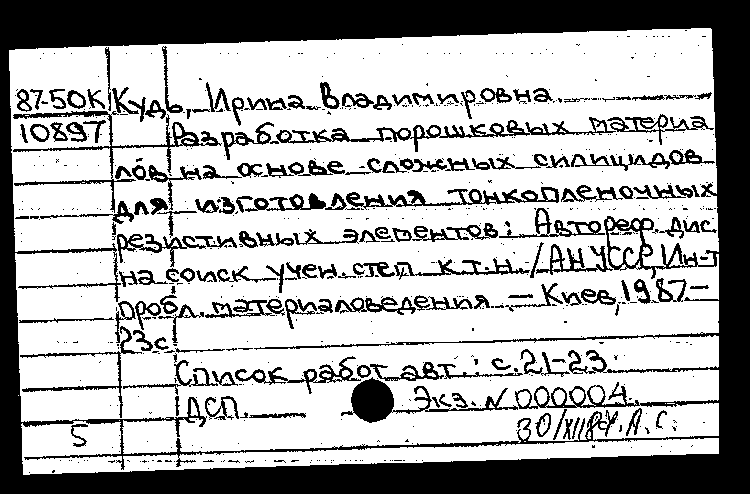 87-50К Кудь, Ирина Владимировна.
10897 Разработка порошковых материа
лов на основе сложных силицидов
для изготовления тонкопленочных
резистивных элементов: Автореф. дис.
на соиск учен. степ к.т.н. / АН УССР, Ин-т
пробл. материаловедения. — Киев, 1987.—
23с.
Список работ авт.: с.21-23.
ДСП. Экз. N 000004.
5 30/XII 87. А.С.